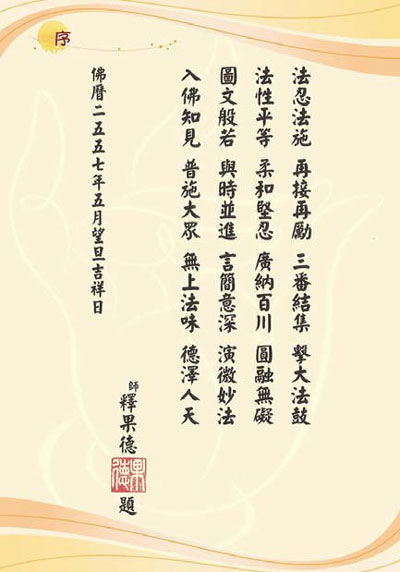 序
法忍法施 再接再勵 三番結集 擊大法鼓
法性平等 柔和堅忍 廣納百川 圓融無礙
圖文般若 與時並進 言簡意深 演微妙法
入佛知見 普施大眾 無上法味 德澤人天
佛曆二五五七年五月望旦吉祥日
師 釋果德 題
果德